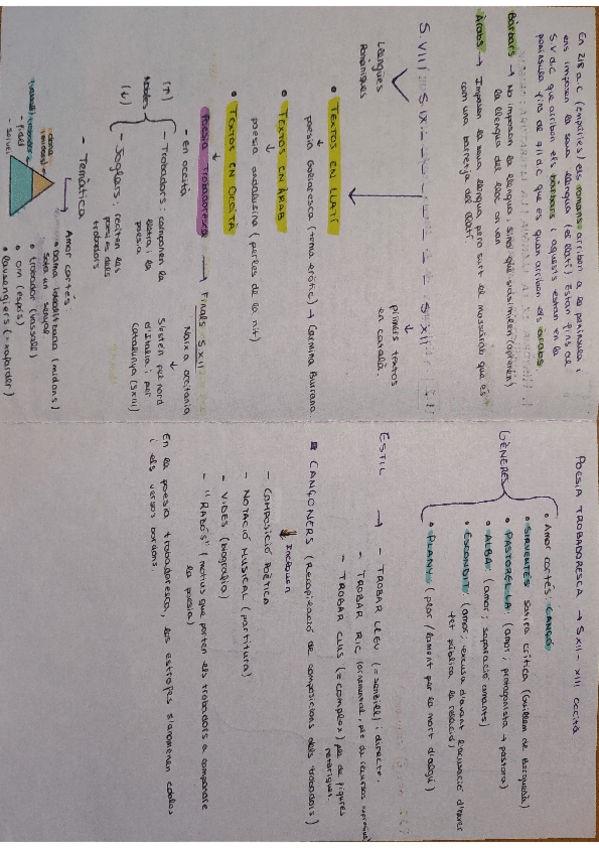 En 218 a.C (empúries) els romans arriben a la península i
ens imposen la seva llengua (el llatí). Estan fins al
S.V d.C que arriben els bàrbars i aquests estan en la
península fins al 711 d.C que es quan arriben els àrabs.
Bàrbars → No imposen la llengua, sinó que s'assimilen (aprenen)
la llengua del lloc on van
Àrabs → Imposen la seva llengua però surt el mossàrab que és
com una barreja del llatí
S.VIII S.IX S.XII
Llengües
Romàniques
primers textos
en català
• TEXTOS EN LLATÍ
poesia Goliardesca (tema eròtic) → Carmina Burana
• TEXTOS EN ÀRAB
poesia andalusina (perles de la nit)
• TEXTOS EN OCCITÀ
Poesia Trobadoresca → Finals S.XII
Naix a occitania
S'estén pel nord
d'Itàlia i per
Catalunya (S.XIII)
- en occità
Nobles
(↑) - Trobadors: componen la
lletra i la
poesia
(↓) - Joglars: reciten els
poemes dels
trobadors
- Temàtica
Amor cortés:
• dama (midons)
• trobador (vassall)
• om (espòs)
• lausengiers (= xafarder)
POESIA TROBADORESCA → S.XII - XIII occità
GÈNERES
• Amor cortés: CANÇÓ
• SIRVENTÉS: satira crítica (Guillem de Berguedà)
• PASTOREL·LA: (amor; protagonista → pastora)
• ALBA: (amor; separació amants)
• ESCONDIT: (amor; excusa davant l'acusació d'haver
fet pública la relació)
• PLANY: (plor / lament per la mort d'algú)
ESTIL → - TROBAR LEU (= senzill): directe,
- TROBAR RIC (ornamental, ple de recursos expressius)
- TROBAR CLUS (= complex) ple de figures
retòriques.
CANÇONERS (Recopilació de composicions dels trobadors)
↓ Inclouen
- COMPOSICIÓ POÈTICA
- NOTACIÓ MUSICAL (partitura)
- VIDES (biografia)
- "RAZÓS" (motius que porten als trobadors a compondre
la poesia)
En la poesia trobadoresca, les estrofes s'anomenen cobles
i els versos bordons.